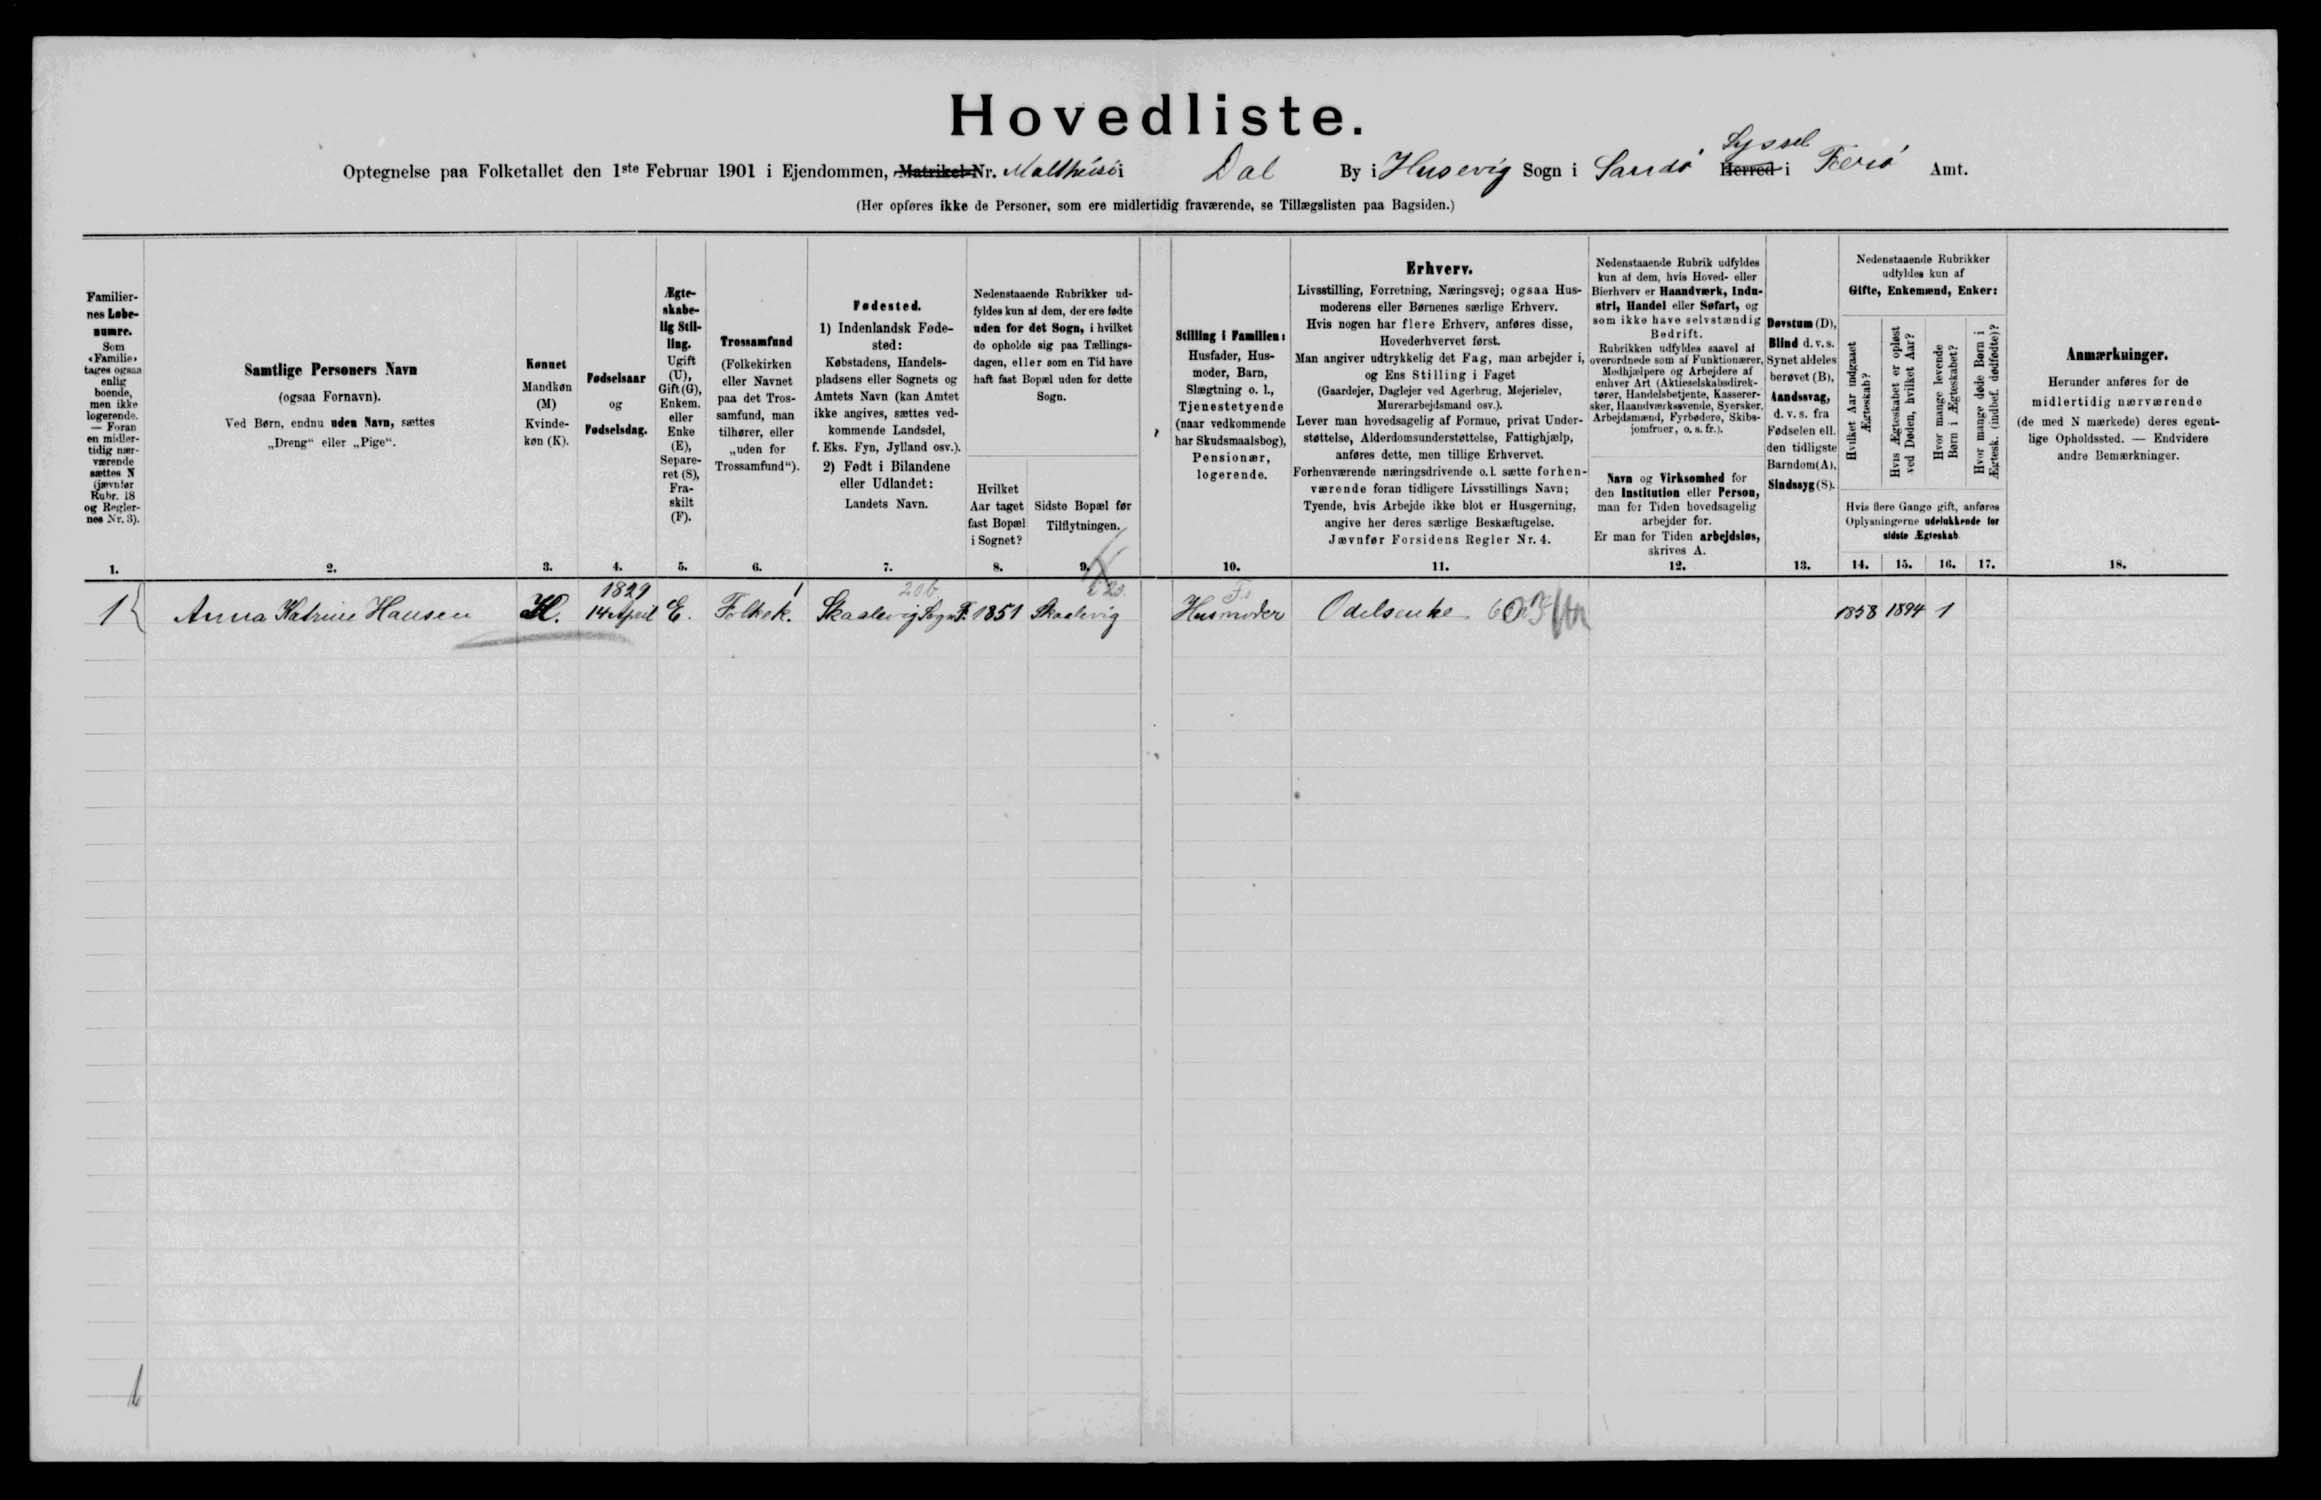 Hovedliste.
Optegnelse paa Folketallet den 1ste Februar 1901 i Ejendommen, Matrikel-Nr. i Dal By i Husevig Sogn i Sandø Herred Syssel i Færø Amt.
(Her opføres ikke de Personer, som ere midlertidig fraværende, se Tillægslisten paa Bagsiden.)
Familier-
nes Løbe-
numre.
Som
«Familie»
tages ogsaa
enlig
boende,
men ikke
logerende.
— Foran
en midler-
tidig nær-
værende
sættes N
(jævnfør
Rubr. 18
og Regler-
nes Nr. 3).
1.
Samtlige Personers Navn
(ogsaa Fornavn).
Ved Børn, endnu uden Navn, sættes
„Dreng“ eller „Pige“.
2.
Kønnet
Mandkøn
(M)
Kvinde-
køn (K).
3.
Fødselsaar
og
Fødselsdag.
4.
Ægte-
skabe-
lig Stil-
ling.
Ugift
(U),
Gift (G),
Enkem.
eller
Enke
(E),
Separe-
ret (S),
Fra-
skilt
(F).
5.
Trossamfund
(Folkekirken
eller Navnet
paa det Tros-
samfund, man
tilhører, eller
„uden for
Trossamfund“).
6.
Fødested.
1) Indenlandsk Føde-
sted:
Købstadens, Handels-
pladsens eller Sognets og
Amtets Navn (kan Amtet
ikke angives, sættes ved-
kommende Landsdel,
f. Eks. Fyn, Jylland osv.).
2) Født i Bilandene
eller Udlandet:
Landets Navn.
7.
Nedenstaaende Rubrikker ud-
fyldes kun af dem, der ere fødte
uden for det Sogn, i hvilket
de opholde sig paa Tællings-
dagen, eller som en Tid have
haft fast Bopæl uden for dette
Sogn.
Hvilket
Aar taget
fast Bopæl
i Sognet?
8.
Sidste Bopæl før
Tilflytningen.
9.
Stilling i Familien:
Husfader, Hus-
moder, Barn,
Slægtning o. l.,
Tjenestetyende
(naar vedkommende
har Skudsmaalsbog),
Pensionær,
logerende.
10.
Erhverv.
Livsstilling, Forretning, Næringsvej; ogsaa Hus-
moderens eller Børnenes særlige Erhverv.
Hvis nogen har flere Erhverv, anføres disse,
Hovederhvervet først.
Man angiver udtrykkelig det Fag, man arbejder i,
og Ens Stilling i Faget
(Gaardejer, Daglejer ved Agerbrug, Mejerielev,
Murerarbejdsmand osv.).
Lever man hovedsagelig af Formue, privat Under-
støttelse, Alderdomsunderstøttelse, Fattighjælp,
anføres dette, men tillige Erhvervet.
Forhenværende næringsdrivende o. l. sætte forhen-
værende foran tidligere Livsstillings Navn;
Tyende, hvis Arbejde ikke blot er Husgerning,
angive her deres særlige Beskæftigelse.
Jævnfør Forsidens Regler Nr. 4.
11.
Nedenstaaende Rubrik udfyldes
kun af dem, hvis Hoved- eller
Bierhverv er Haandværk, Indu-
stri, Handel eller Søfart, og
som ikke have selvstændig
Bedrift.
Rubrikken udfyldes saavel af
overordnede som af Funktionærer,
Medhjælpere og Arbejdere af
enhver Art (Aktieselskabsdirek-
tører, Handelsbetjente, Kasserer-
sker, Haandværkssvende, Syersker,
Arbejdsmænd, Fyrbødere, Skibs-
jomfruer, o. s. fr.).
Navn og Virksomhed for
den Institution eller Person,
man for Tiden hovedsagelig
arbejder for.
Er man for Tiden arbejdsløs,
skrives A.
12.
Døvstum (D),
Blind d. v. s.
Synet aldeles
berøvet (B),
Aandssvag,
d. v. s. fra
Fødselen ell.
den tidligste
Barndom (A),
Sindssyg (S).
13.
Nedenstaaende Rubrikker
udfyldes kun af
Gifte, Enkemænd, Enker:
Hvilket Aar indgaaet
Ægteskab?
Hvis Ægteskabet er opløst
ved Døden, hvilket Aar?
Hvor mange levende
Børn i Ægteskabet?
Hvor mange døde Børn i
Ægtesk. (indbef. dødfødte)?
Hvis flere Gange gift, anføres
Oplysningerne udelukkende for
sidste Ægteskab.
14. 15. 16. 17.
Anmærkninger.
Herunder anføres for de
midlertidig nærværende
(de med N mærkede) deres egent-
lige Opholdssted. — Endvidere
andre Bemærkninger.
18.
1 Anna Katrine Hansen K. 1829 14 April E. Folkek. Skaalevig Sogn F. 1851 Skaalevig Husmoder Odelsenke 1858 1894 1
1